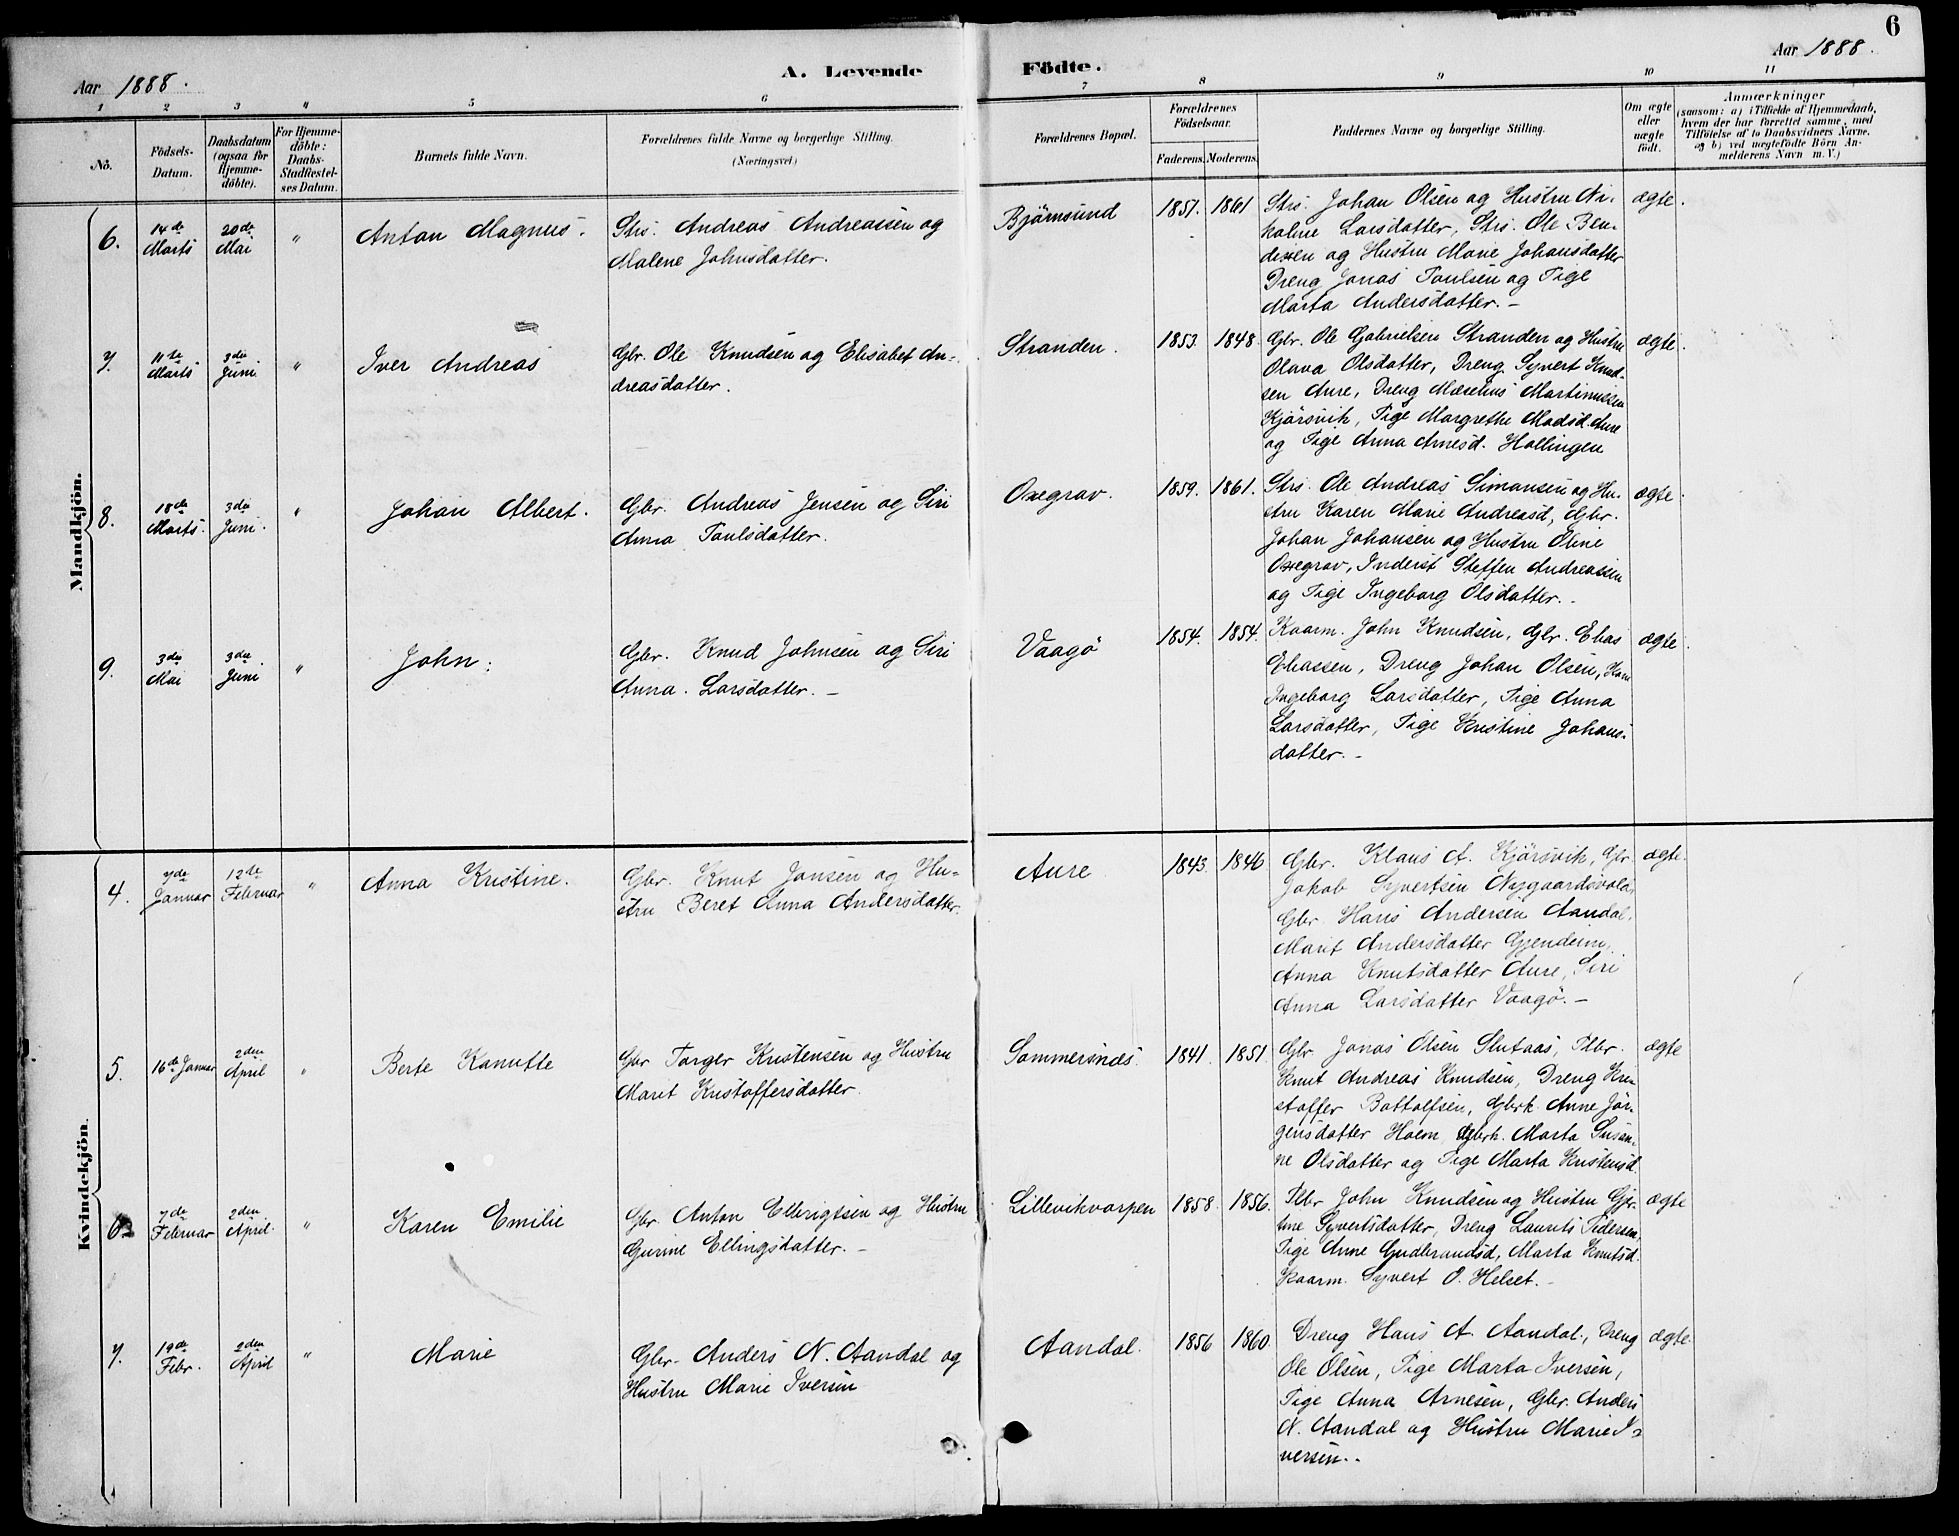 6
Aar 1888.
A. Levende Födte.
Aar 1888.
1 2 3 " 5 6 7 8 9 10 11
No.
Födsels-
Datum.
Daabsdatum
(ogsaa for
Hjemme-
döbte).
For Hjemme-
döbte:
Daabs-
Stadfæstel-
ses Datum.
Barnets fulde Navn.
Forældrenes fulde Navne og borgerlige Stilling.
(Næringsvei.)
Forældrenes Bopæl.
Forældrenes
Födselsaar.
Faderens. Moderens.
Faddernes Navne og borgerlige Stilling.
Om ægte
eller
uægte
født.
Anmærkninger
(saasom: a) i Tilfælde af Hjemmedaab,
hvem der har forrettet samme, med
Tilföielse af to Daabsvidners Navne,
og b) ved uægtefödte Börn An-
melderens Navn m. V.)
Mandkjön.
6.
14de
Marts
20de
Mai
"
Anton Magnus.
Strs. Andreas Andreassen og
Malene Johnsdatter.
Bjørnsund
1857. 1861
Strs. Johan Olsen og Hustru Ni-
koline Larsdatter, Strs. Ole Ben-
dixen og Hustru Marie Johansdatter
Dreng Jonas Paulsen og Pige
Marta Andersdatter. -
ægte.
7.
11te
Marts
3die
Juni
"
Iver Andreas
Gbr. Ole Knudsen og Elisabet An-
dreasdatter.
Stranden.
1853. 1848.
Gbr. Ole Gabrielsen Stranden og Hustru
Olava Olsdatter, Dreng Syvert Knud-
sen Aure, Dreng Martinussen
Kjørsvik, Pige Margrethe Madsd. Aure
og Pige Anna Arnesd. Hollingen
ægte.
8.
18de
Marts.
3die
Juni.
"
Johan Albert.
Gbr. Andreas Jensen og Siri
Anna Paulsdatter.
Oxegrav.
1859. 1861.
Strs. Ole Andreas Simonsen og Hu-
stru Karen Marie Andreasd, Gbr.
Johan Johansen og Hustru Oline
Oxegrav, Inderst Steffen Andreassen
og Pige Ingeborg Olsdatter. -
ægte.
9.
3die
Mai
3die
Juni
"
John.
Gbr. Knud Johnsen og Siri
Anna Larsdatter. -
Vaagø
1854. 1854.
Kaarm. John Knudsen, Gbr. Elias
Eliassen, Dreng Johan Olsen, Kone
Ingeborg Larsdatter, Pige Anna
Larsdatter, Pige Kristine Johans-
datter. -
ægte.
Kvindekjön.
4.
7de
Januar
12te
Februar
"
Anna Kristine.
Gbr. Knut Jonsen og Hu-
stru Beret Anna Andersdatter.
Aure
1843. 1846
Gbr. Klaus A. Kjørsvik, Gbr
Jakob Syvertsen Nygaardsvold,
Gbr. Hans Andersen Aandal,
Marit Andersdatter Gjendem,
Anna Knutsdatter Aure, Siri
Anna Larsdatter Vaagø. -
ægte.
5.
16de Januar
2den
April
"
Berte Kanutte
Gbr Torger Kristensen og Hustru
Marit Kristoffersdatter.
Sommernæs.
1841. 1851
Gbr. Jonas Olsen Slutaas, Flbr.
Knut Andreas Knudsen, Dreng Kri-
stoffer Bottolfsen, Gbrk. Anne Jør-
gensdatter Haem, Gbrk. Marta Susan-
ne Olsdatter og Pige Marta Kristensd.
ægte
6.
7de
Februar
2den
April.
"
Karen Emilie
Gbr. Anton Elbrigtsen og Hustru
Gurine Ellingsdatter. -
Lillevikvarpen
1858. 1856.
Flbr John Knudsen og Hustru Gjer-
tine Syvertsdatter, Dreng Laurits Pedersen,
Pige Anne Gudbrandsd, Marta Knutsd.
Kaarm. Syvert O. Helset. -
ægte
7.
19de
Febr.
2den
April
"
Marie
Gbr. Anders N. Aandal og
Hustru Marie Iversen
Aandal.
1856 1860.
Dreng Hans A. Aandal, Dreng
Ole Olsen, Pige Marta Iversen,
Pige Anna Arnesen, Gbr. Anders
N. Aandal og Hustru Marie I-
versen. -
ægte.